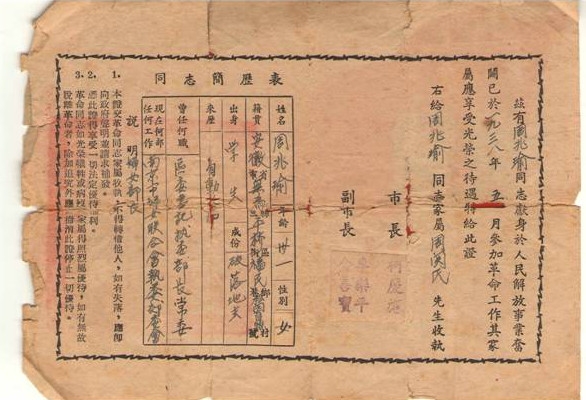 茲有周兆瑜同志獻身於人民解放事業奮
鬪已於一九三八年 五 月參加革命工作其家
屬應享受光榮之待遇特給此證
右給周兆瑜 同志家屬周漢民 先生收執
市長
副市長
同志簡歷表
姓名 周兆瑜 年齡 廿一 性別 女
籍貫 安徽
來歷 自動
出身 學生 成份 破落地主
曾任何職 區委書記 部長 常委
現在何部任何工作 南京市婦女聯合會執委
婦女部長
說明
1. 本證交革命同志家屬收執，不得轉借他人，如有失落，應即
向政府聲明並請求補發。
2. 憑此證得享受一切法定優待權利。
3. 革命同志如光榮犧牲或病故，家屬得烈屬優待，如有無故
脫離革命者，除加追究外應 此證停止一切優待。